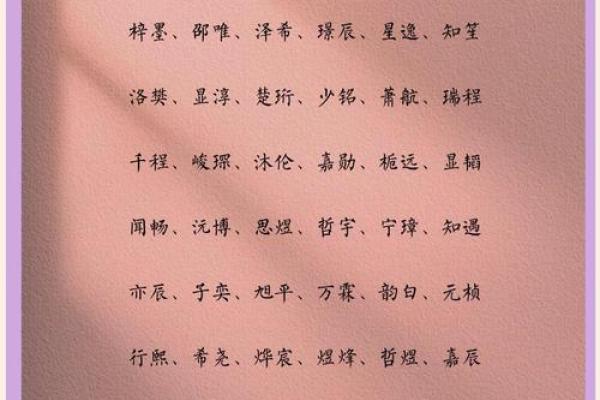 梓墨、邵唯、泽希、璟辰、星逸、知笙
洛樊、显淳、楚珩、少铭、萧航、瑞程
千程、峻琛、沐伦、嘉勋、栀远、显韬
闻畅、沅博、思煜、哲宇、宁璋、知遇
亦辰、子奕、旭平、万霖、韵白、元桢
行熙、希尧、烨宸、煜烽、哲煜、嘉辰